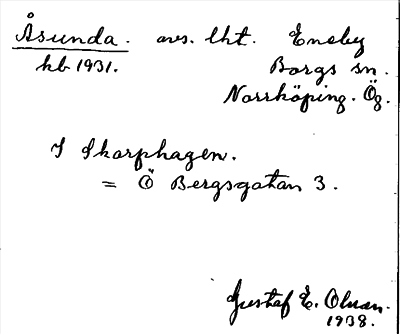 Åsunda. avs. lht. Eneby
kb 1931. Borgs sn.
Norrköping. Ög.
I Skarphagen.
= Ö Bergsgatan 3.
Gustaf E. Olsson.
1938.